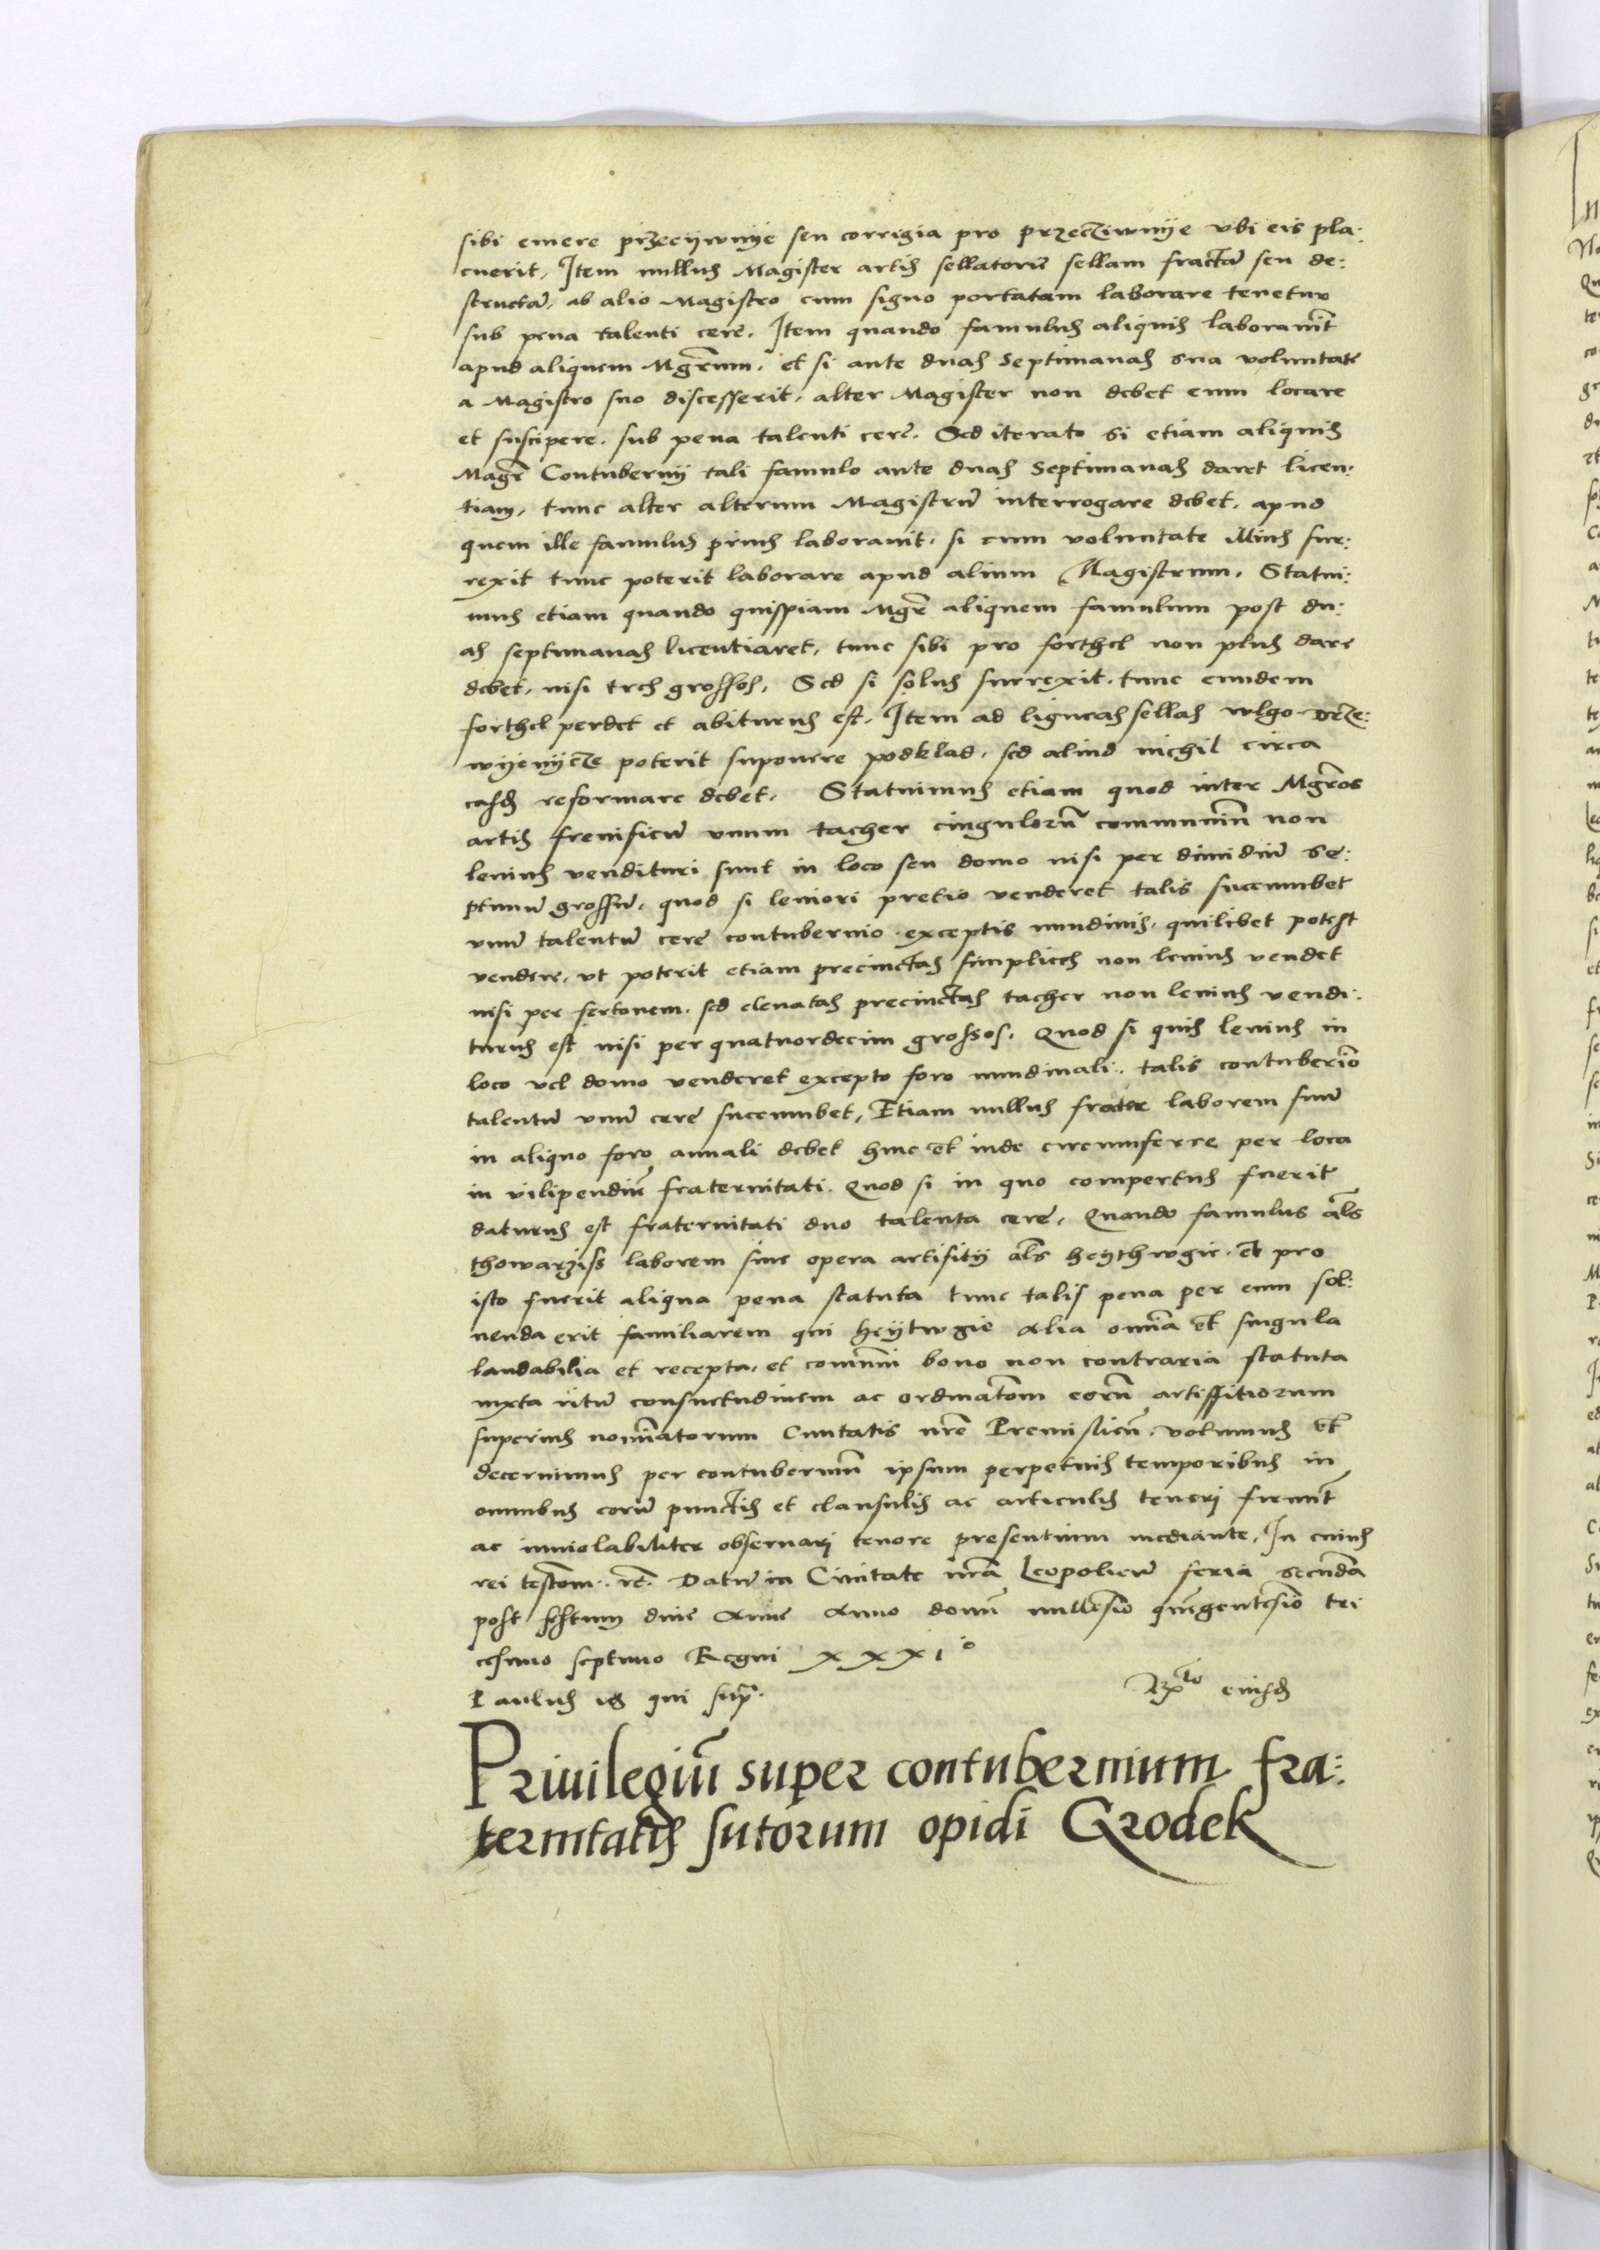 sibi emere przeciywnye seu corrigia pro przecziwnye vbi eis pla:
cuerit, Item nullus Magister artis sellatorie sellam fractā seu de:
structā, ab alio Magistro cum signo portatam laborare tenetur
sub pena talenti cere, Item quando famulus aliquis laborauīt
apud aliquem Mgrēum, et si ante duas septimanas sua voluntate
a Magistro suo discesserit, alter Magister non debet eum locare
et suscipere, sub pena talenti cere, Sed iterato si etiam aliquis
Magr̄ Contubernij tali famulo ante duas septimanas daret licen:
tiam, tunc alter alterum Magistrū interrogare debet, apud
quem ille famulus prius laborauit, si cum voluntate illius sur:
rexit tunc poterit laborare apud alium Magistrum, Statui:
mus etiam quando quispiam Mgr̄ aliquem famulum post du:
as septimanas licentiaret, tunc sibi pro forthel non plus dare
debet, nisi tres grossos, Sed si solus surrexit, tunc eundem
forthel perdet et abiturus est, Item ad ligneas sellas wlgo drze:
wyenycze poterit suponere podklad, sed aliud nichil circa
easdē reformare debet, Statuimus etiam quod inter Mgrōs
artis frenificū vnum tacher cingulorū communiū non
leuius vendituri sunt in loco seu domo nisi per dimidiū se:
ptimū grossū, quod si leuiori pretio venderet talis succumbet
vnū talentū cere contubernio, exceptis nundinis, quilibet potest
vendere, vt poterit etiam precinctas simplices non leuius vendet
nisi per fertonem, sed eleuatas precinctas tacher non leuius vendi:
turus est nisi per quatuordecim grossos, Quod si quis leuius in
loco vel domo venderet excepto foro nundinali, talis contuberīo
talentū vnū cere succumbet, Etiam nullus frater laborem suū
in aliquo foro annali debet hinc et inde circumferre per loca
in vilipendiū fraternitati, Quod si in quo compertus fuerit
daturus est fraternitati duo talenta cere, Quando famulus āls
thowarziss laborem siue opera artifitij āls heythwgie, et pro
isto fuerit aliqua pena statuta tunc talis pena per eum sol:
uenda erit familiarem qui heytwgie Alia om̄ia et singula
laudabilia et recepta, et com̄uni bono non contraria statuta
iuxta ritū consuetudinem ac ordinatōm eorū artiffitiorum
superius nominatorum Ciuitatis nrē Premisliēn, volumus et
decernimus per contuberniū ipsum perpetuis temporibus in
omnibus eorū punctis et clausulis ac articulis teneri firmīt
ac inuiolabiliter obseruari tenore presentium mediante, In cuius
rei testom, rc̄, Datū in Ciuitate nrā Leopolieñ feria secūda
post festum diue Anne Anno domī millesīo quīgentesīo tri
cesimo septimo Regni xxxi°
Paulus vs qui supr̄ Rx̄to eiusdē
Priuilegiū super contubernium fra:
ternitatis sutorum opidi Grodek